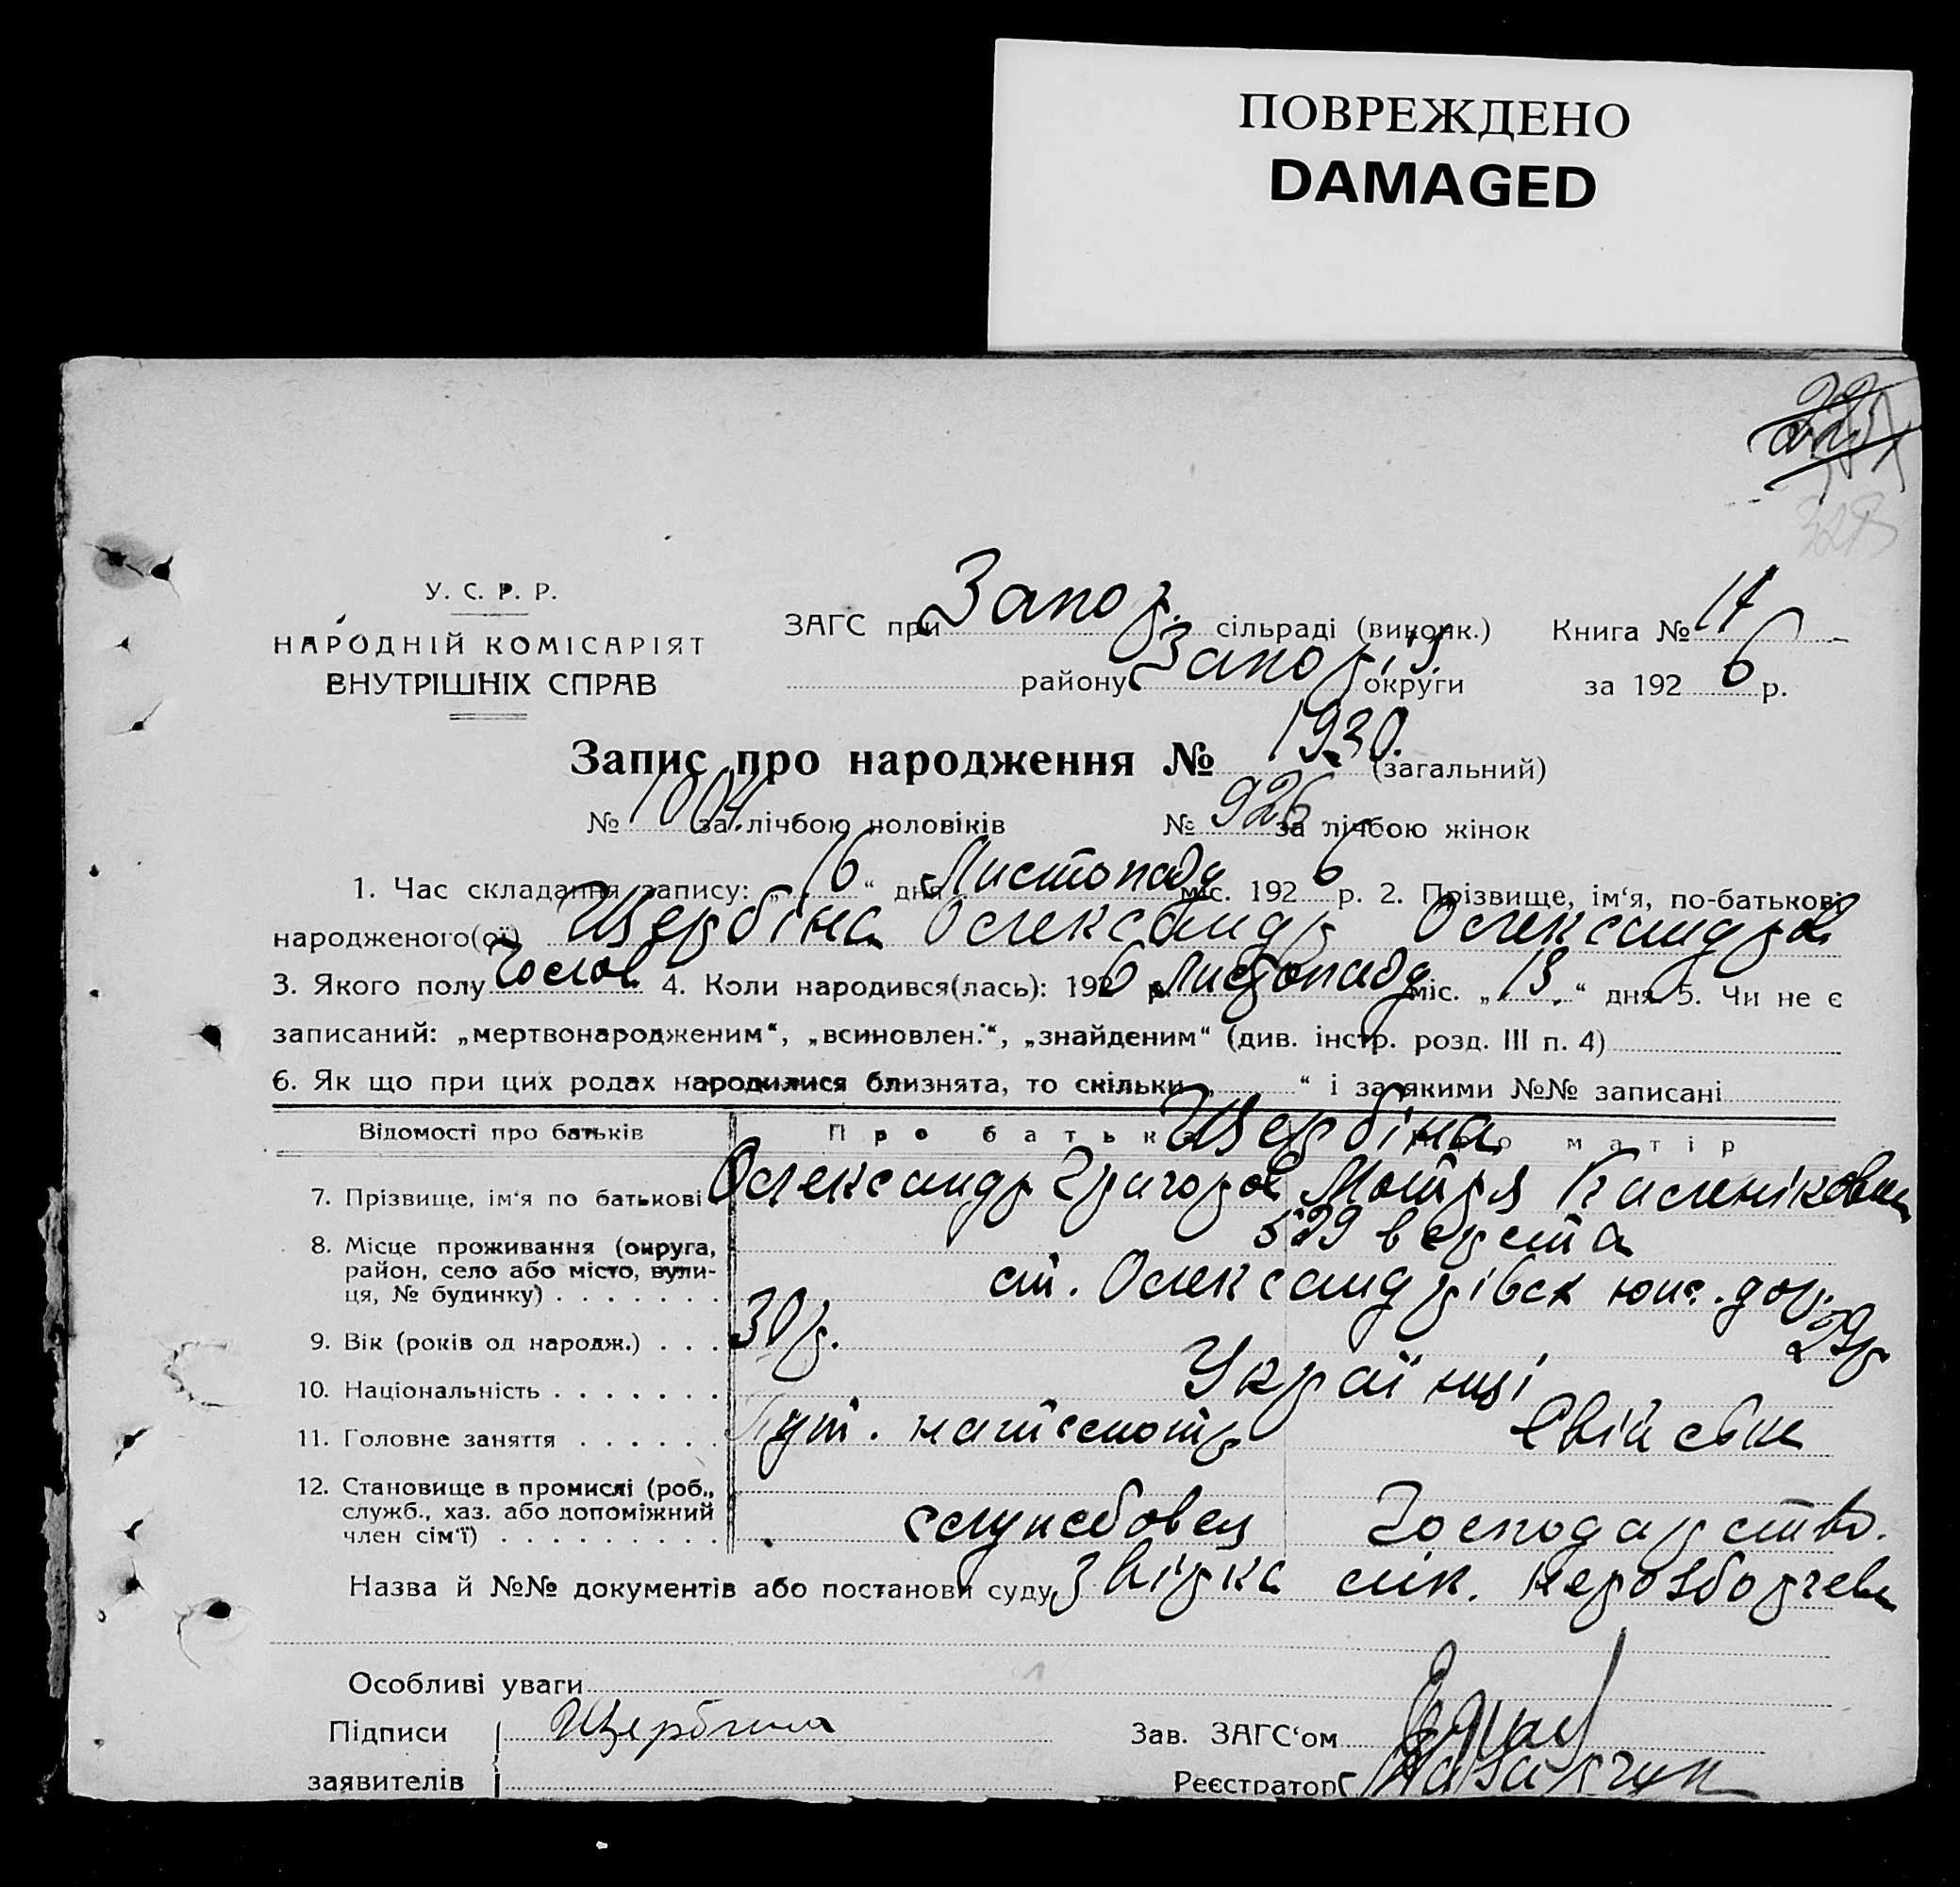 ПОВРЕЖДЕНО
DAMAGED
У. С. Р. Р.
НАРОДНІЙ КОМІСАРІЯТ
ВНУТРІШНІХ СПРАВ
ЗАГС при Запор. сільраді (виконк.) Книга №
району Запоріз. округи за 1926 р.
Запис про народження № 1930. (загальний)
№ 1004. за лічбою чоловіків № 926 за лічбою жінок
1. Час складання запису: „16“ дня Листопаду міс. 1926 р. 2. Прізвище, ім‘я, по-батькові
народженого(ої) Щербіна Олександр Олександров
3. Якого полу Чолов 4. Коли народився(лась): 1926 р. Листопаду міс. „13.“ дня 5. Чи не є
записаний: „мертвонародженим“, „всиновлен.“, „знайденим“ (див. інстр. розд. III п. 4)
6. Як що при цих родах народилися близнята, то скільки „ “ і за якими №№ записані
Відомості про батьків Про батька Про матір
Щербіна
7. Прізвище, ім‘я по батькові Олександр Григоров Мотря Каленіковна
8. Місце проживання (округа, район, село або місто, вулиця, № будинку) . . . . . . .
529 верста
ст. Олександрівск юж. дор.
9. Вік (років од народж.) . . . 30 р. 29 р
10. Національність . . . . . . . Українці
11. Головне заняття . . . . . . Пут. Свійське
12. Становище в промислі (роб., служб., хаз. або допоміжний член сім‘ї) . . . . . . . . . службовец Господарство.
Назва й №№ документів або постанови суду Звірка лік.
Особливі уваги
Підписи Щербина Зав. ЗАГС‘ом
заявителів Реєстратор